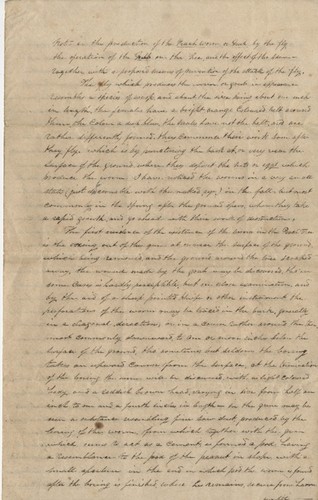 Notes on the production of the Peach Worm or Grub by the fly
the operation of the Grub on the Tree and the effect of the same
together with a proposed means of prevention of the attack of the fly.
The fly which produces the worm or grub in appearance
resembles a species of wasp, and about the size being about an inch
in length, the females have a bright orange Colored belt around
them, the Color a deep blue, the males have not the belt, and are
rather differently formed. these commence their work soon after
they fly, which is by puncturing the bark at or very near the
surface of the ground where they deposit the nits or eggs which
produce the worm. I have noticed the worms in a very small
state (just discernible with the naked eye) in the fall, but most
commonly in the Spring after the ground thaws when they take
a rapid growth, and go ahead with their work of destruction.
The first evidence of the existence of the worm in the Peach Tree
is the oozing out of the gum at or near the surface of the ground,
which being removed and the ground around the tree scraped
away, the wound made by the grub may be discovered, tho in
some cases is hardly perceptible, but on close examination, and
by the aid of a sharp pointed knife or other instrument the
operations of the worm may be traced in the bark, generally
in a diagonal direction, or in a course rather around the tree
most commonly downwards to one or more inches below the
surface of the ground, tho sometimes but seldom the boring
takes an upward course from the surface, at the termination
of the boring the worm will be discovered, with a light Colored
body and a reddish brown head, varying in size from half an
inch to one and a fourth inch in length
in a substance resembling fine saw dust produced by the
boring of the worm from which together with the gum
which seems to act as a cement is formed a pod having
a resemblance to the pod of the peanut in shape with a
small aperture in the end in which pod the worm is found
after the boring is finished where he remains